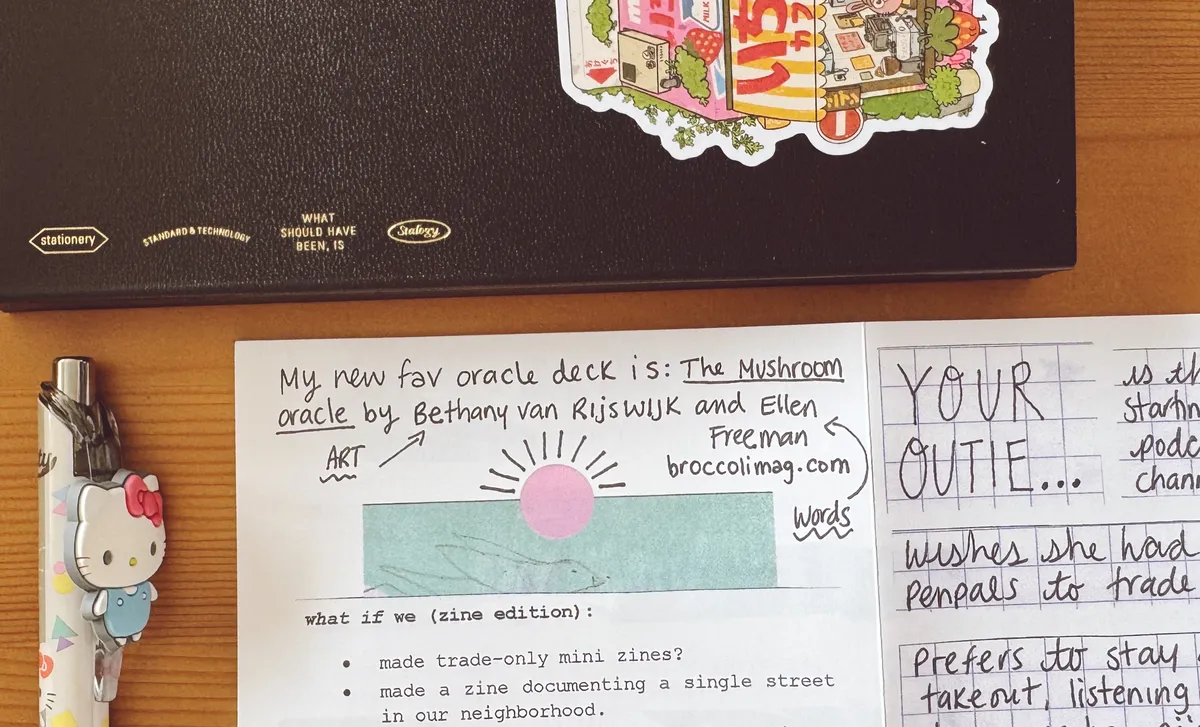 MILK
いち
カフ
stationery
STANDARD & TECHNOLOGY
WHAT
SHOULD HAVE
BEEN, IS
Stalogy
My new fav oracle deck is: The Mushroom
oracle by Bethany van Rijswijk and Ellen
Freeman
ART
broccolimag.com
words
what if we (zine edition):
• made trade-only mini zines?
• made a zine documenting a single street
in our neighborhood.
YOUR
OUTIE...
is th
startin
podc
chann
wishes she had
penpals to trade
Prefers to stay
takeout, listening